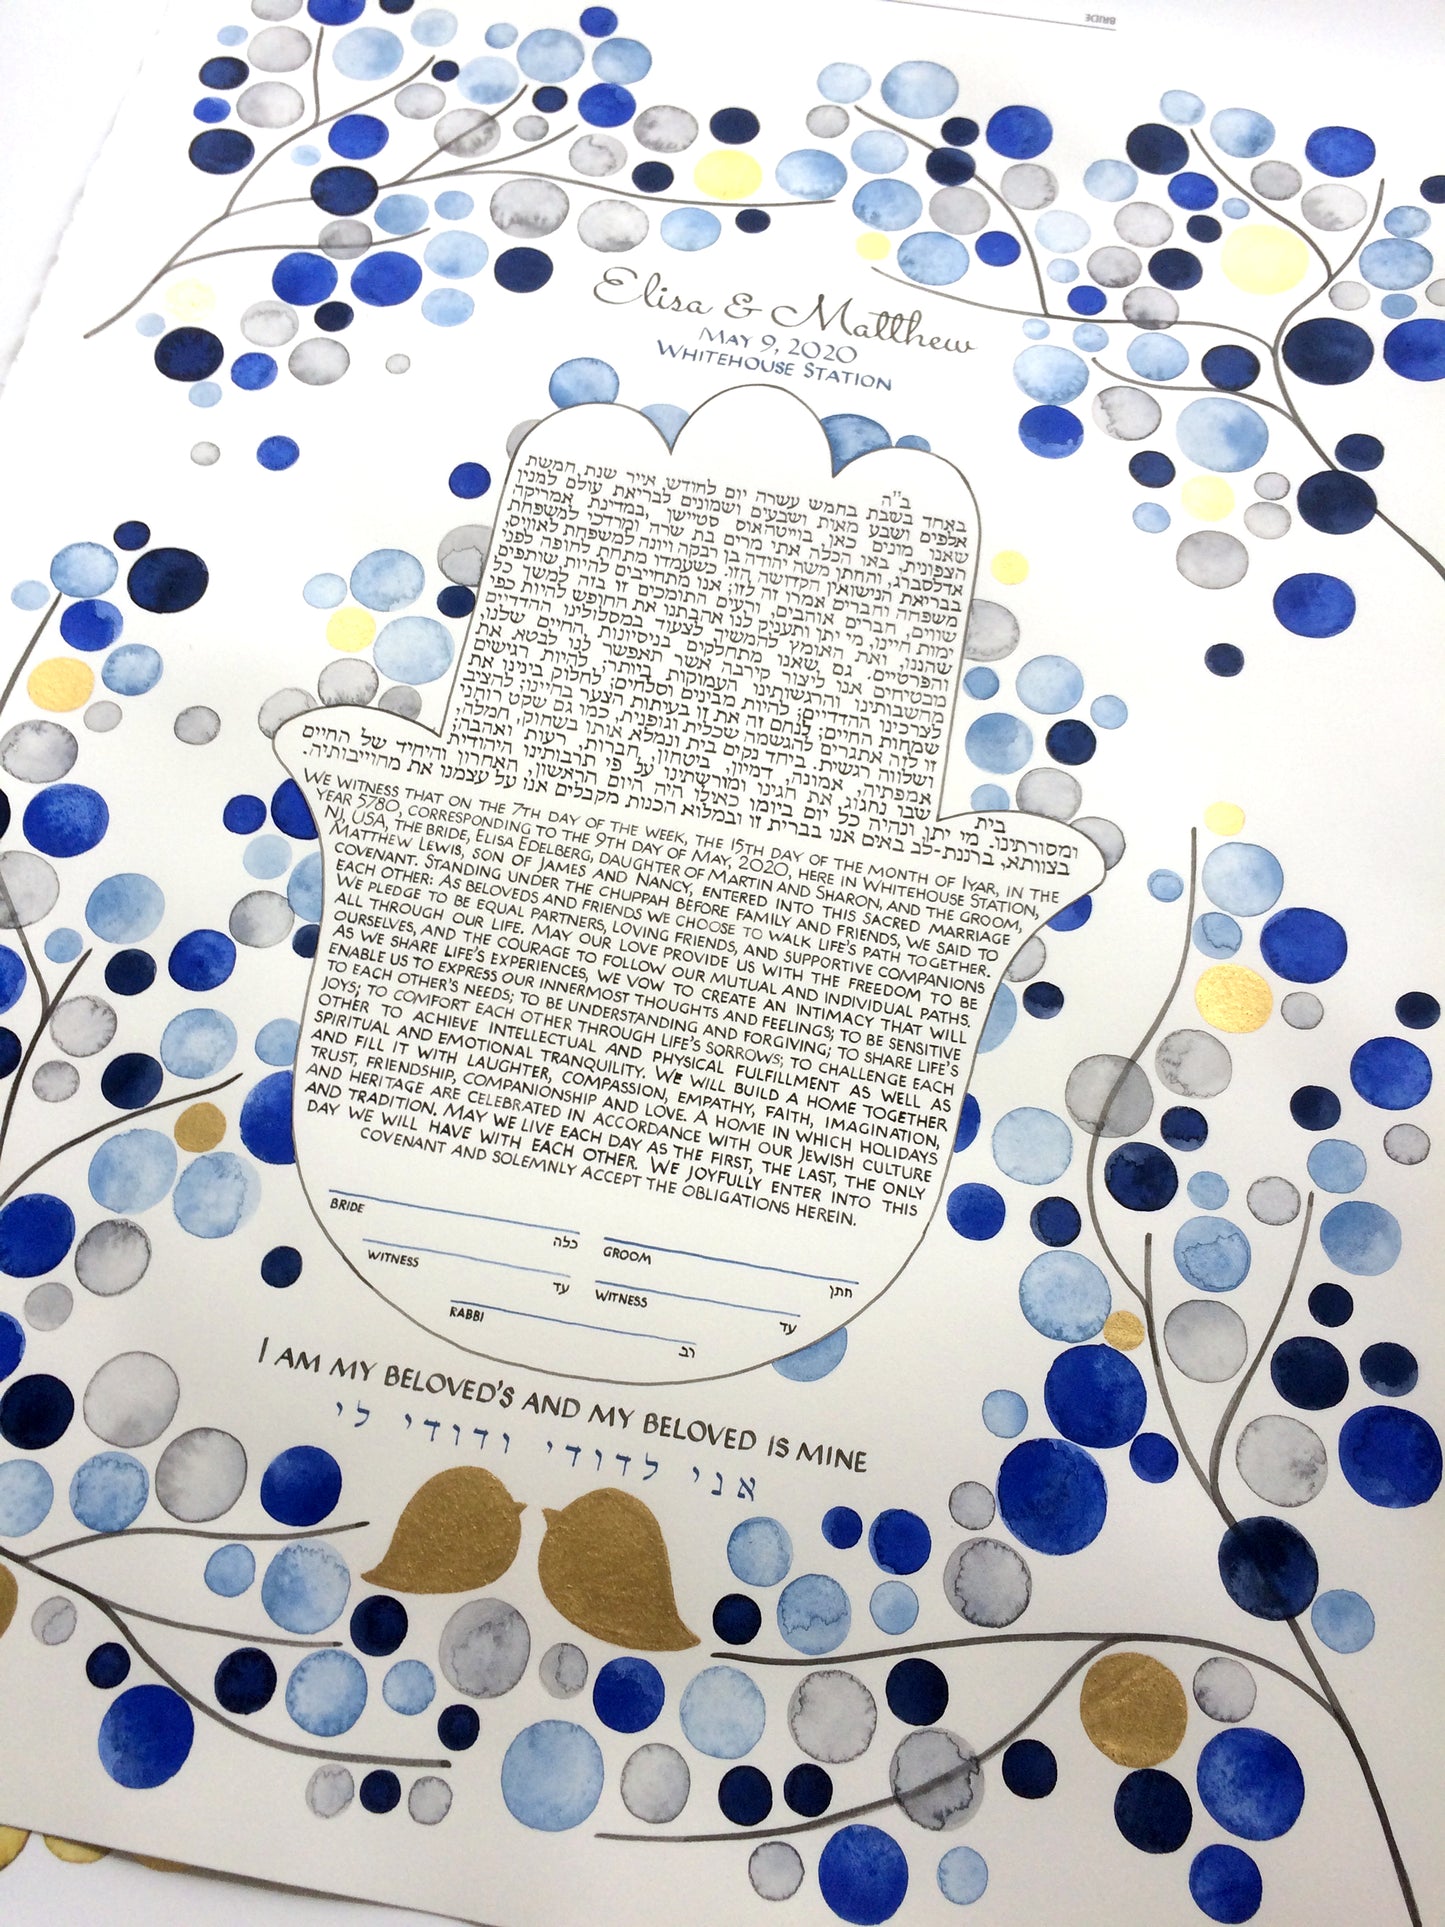 BRIDE
Elisa & Matthew
May 9, 2020
Whitehouse Station
ב"ה
באחד בשבת בחמש עשרה יום לחודש אייר שנת חמשת
אלפים ושבע מאות ושבעים ושמונים לבריאת עולם למנין
שאנו מונים כאן בוויטהאוס סטיישן, במדינת אמריקה
הצפונית, באו הכלה אתי מרים בת שרה ומרדכי למשפחת
אדלסברג, והחתן משה יהודה בן רבקה ויונה למשפחת לאוויס,
בבריאת הנישואין הקדושה הזו. כשעמדו מתחת לחופה לפני
משפחה וחברים אמרו זה לזו: אנו מתחייבים להיות שותפים
שווים, חברים אוהבים, ורעים התומכים זו בזה למשך כל
ימות חיינו, מי יתן ותעניק לנו אהבתנו את החופש להיות כפי
שהננו, ואת האומץ להמשיך לצעוד במסלולינו ההדדיים
והפרטיים. גם שאנו מתחלקים בניסיונות החיים שלנו,
מבטיחים אנו ליצור קירבה אשר תאפשר לנו לבטא את
מחשבותינו והרגשותינו העמוקות ביותר; להיות רגישים
לצרכינו ההדדיים; להיות מבינים וסלחים; לחלוק בינינו את
שמחות החיים; לנחם זה את זו בעיתות הצער בחיינו; להציב
זו לזה אתגרים להגשמה שכלית וגופנית, כמו גם שקט רוחני
ושלווה רגשית. ביחד נקים בית ונמלא אותו בשחוק, חמלה,
אמפתיה, אמונה, דמיון, ביטחון, חברות, רעות ואהבה;
בית שבו נחגוג את חגינו ומורשתינו על פי תרבותינו היהודית
ומסורתינו. מי יתן ונהיה כל יום ביומו כאילו היה היום הראשון, האחרון והיחיד של החיים
בצוותא, ברננת-לב באים אנו בברית זו ובמלוא הכנות מקבלים אנו על עצמנו את מחוייבותיה.
We witness that on the 7th day of the week, the 15th day of the month of Iyar, in the
year 5780, corresponding to the 9th day of May, 2020, here in Whitehouse Station,
NJ, USA, the bride, Elisa Edelberg, daughter of Martin and Sharon, and the groom,
Matthew Lewis, son of James and Nancy, entered into this sacred marriage
covenant. Standing under the chuppah before family and friends, we said to
each other: As beloveds and friends we choose to walk life's path together.
We pledge to be equal partners, loving friends, and supportive companions
all through our life. May our love provide us with the freedom to be
ourselves, and the courage to follow our mutual and individual paths.
As we share life's experiences, we vow to create an intimacy that will
enable us to express our innermost thoughts and feelings; to be sensitive
to each other's needs; to be understanding and forgiving; to share life's
joys; to comfort each other through life's sorrows; to challenge each
other to achieve intellectual and physical fulfillment as well as
spiritual and emotional tranquility. We will build a home together
and fill it with laughter, compassion, empathy, faith, imagination,
trust, friendship, companionship and love. A home in which holidays
and heritage are celebrated in accordance with our Jewish culture
and tradition. May we live each day as the first, the last, the only
day we will have with each other. We joyfully enter into this
covenant and solemnly accept the obligations herein.
BRIDE כלה
GROOM חתן
WITNESS עד
WITNESS עד
RABBI רב
I am my beloved's and my beloved is mine
אני לדודי ודודי לי